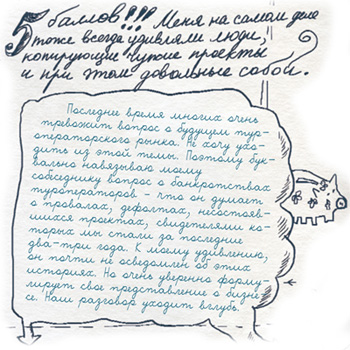 5 баллов!!! Меня на самом деле
тоже всегда удивляли люди,
копирующие чужие проекты
и при этом довольные собой.
Последнее время многих очень
тревожит вопрос о будущем тур-
операторского рынка. Не хочу ухо-
дить из этой темы. Поэтому бук-
вально навязываю моему
собеседнику вопрос о банкротствах
туроператоров - что он думает
о провалах, дефолтах, несостояв-
шихся проектах, свидетелями ко-
торых мы стали за последние
два-три года. К моему удивлению,
он почти не осведомлен об этих
историях. Но очень уверенно форму-
лирует свое представление о бизне-
се. Наш разговор уходит вглубь.